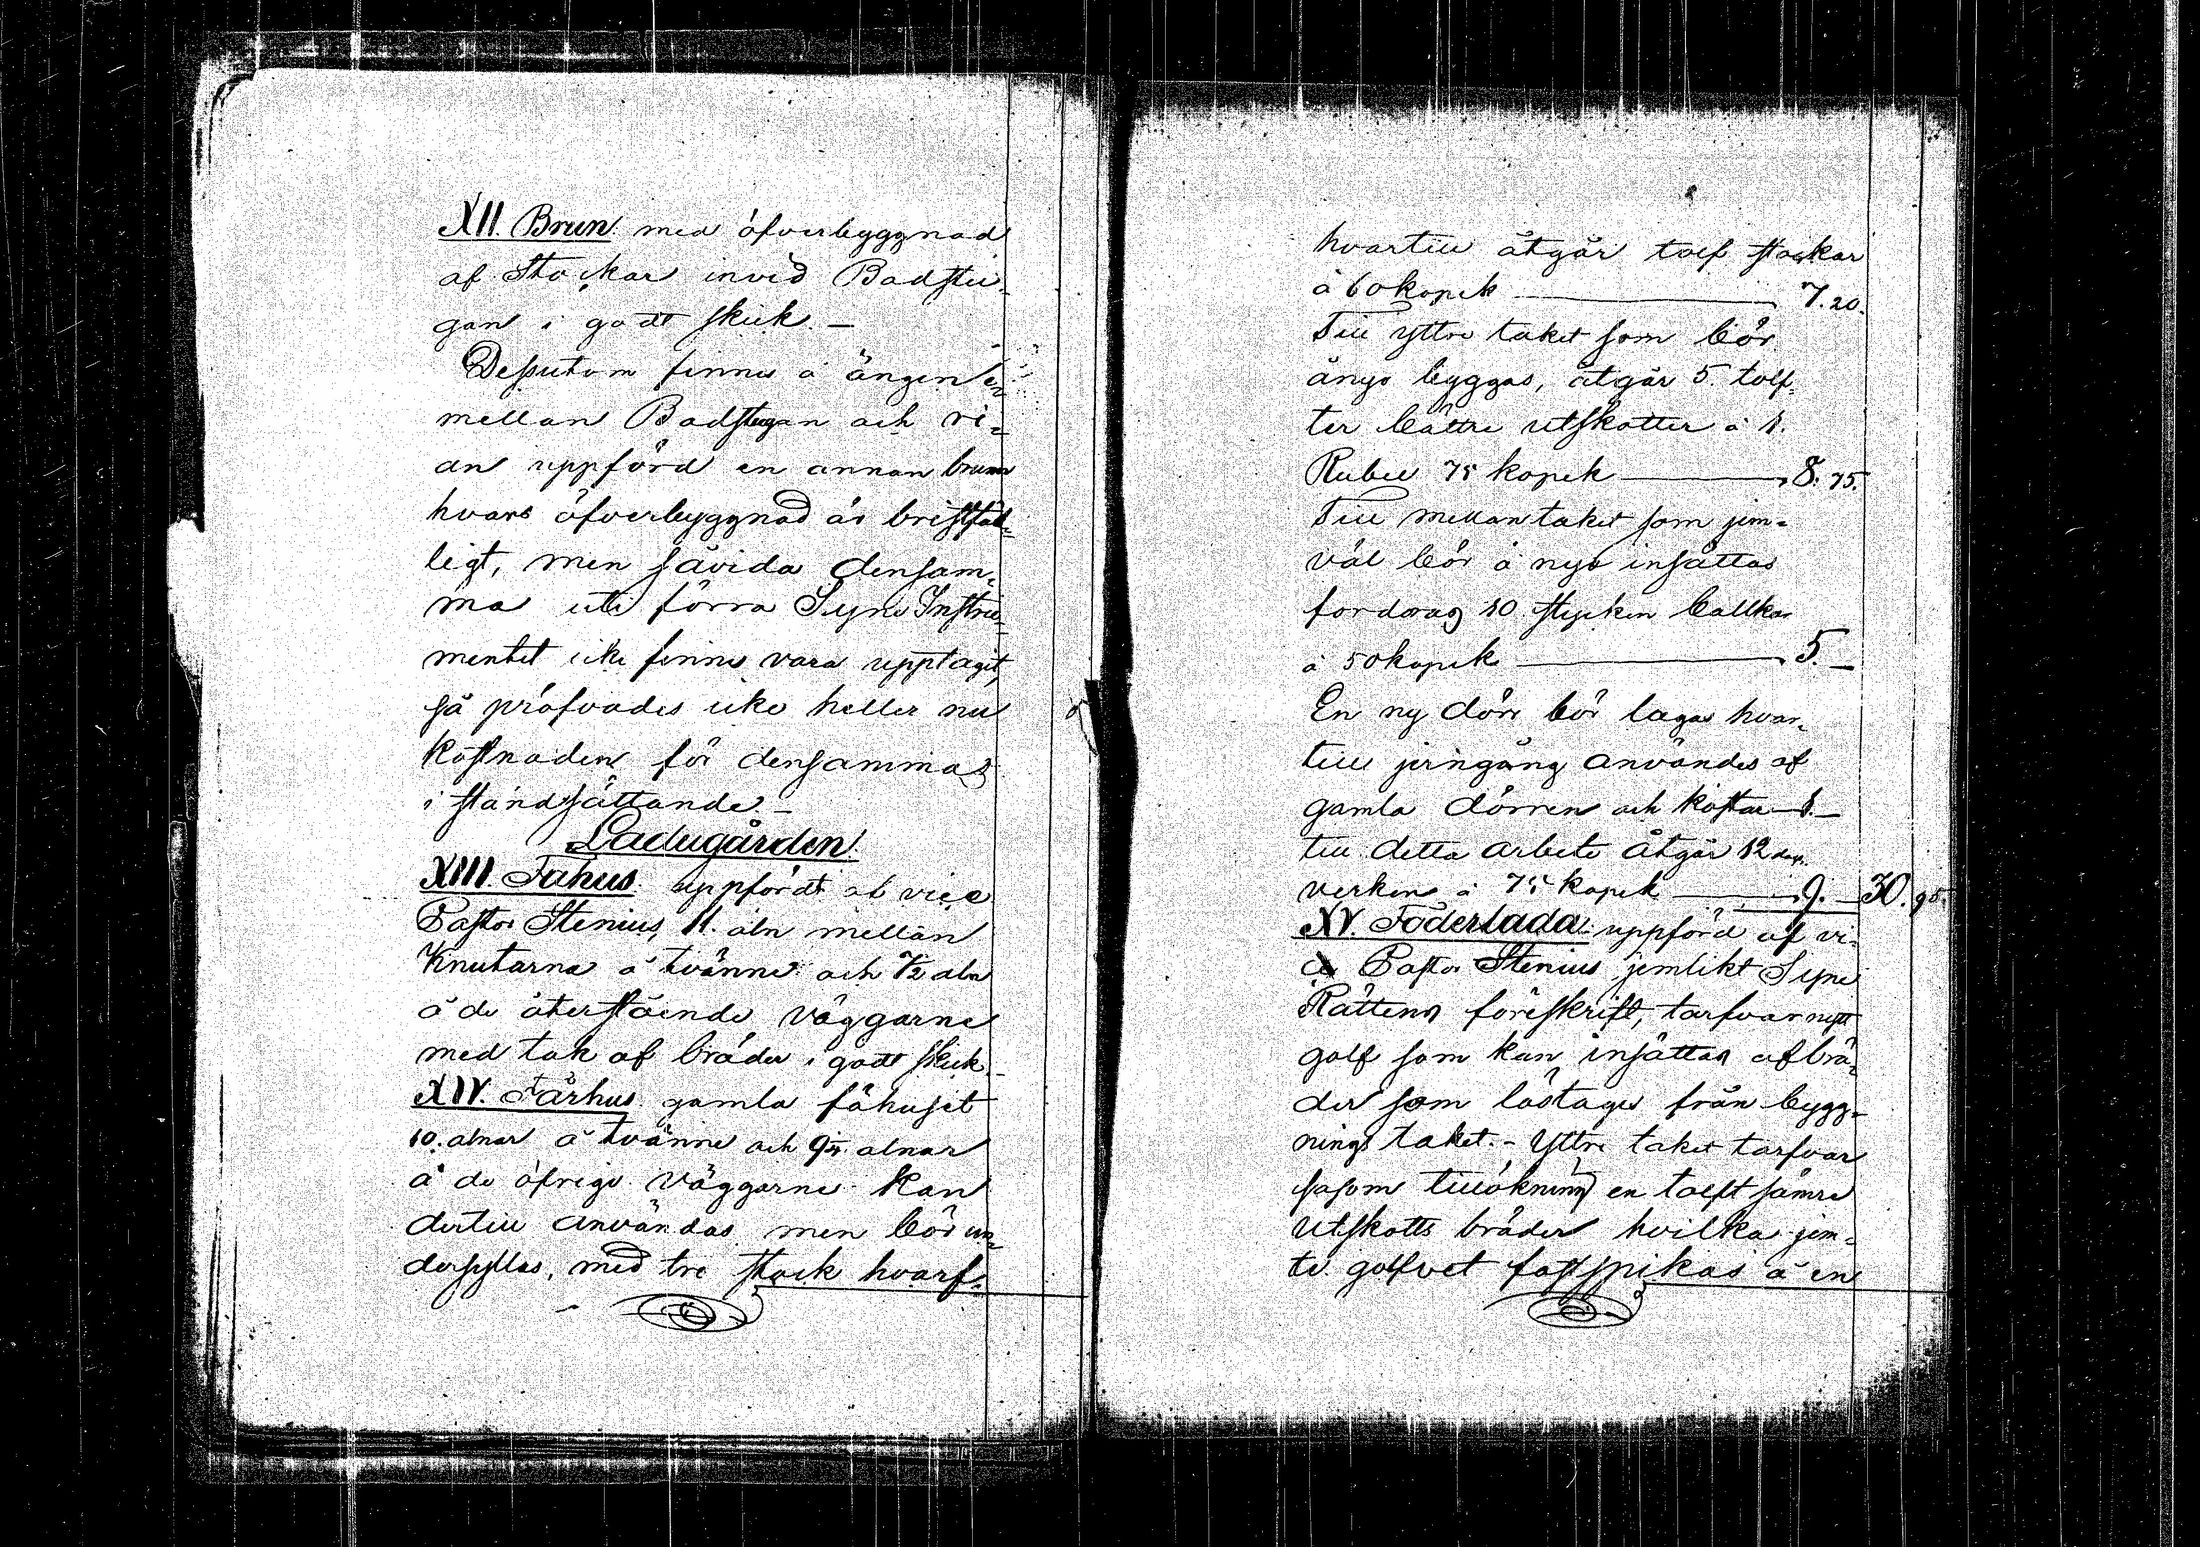 XII. Brun. med öfverbyggnad
af Stockar invid Badstu-
gan i godt skick. —
Dessutom finnes å ängen e-
mellan Badstugan och ri-
an uppförd en annan brunn
hvars öfverbyggnad är bristfäl-
ligt, men såvida densam-
ma uti förra Syne Instru-
mentet icke finnes vara upptagit,
så pröfvades icke heller nu
kostnaden för densammas
i ståndsättande —
Ladugården.
XIII. Fähus uppfördt af vice
Pastor Stenius, 11. aln mellan
Knutarna å tvänne och 7/2 aln
å de återstående väggarne
med tak af bräder i godt skick. —
XIV. Fårhus gamla fähuset
10. alnar å tvänne och 9 1/4. alnar
å de öfrige väggarne kan
dertill användas men bör un-
dersyllas, med tre stock hvarf.
hvartill åtgår tolf stockar
à 60 kopek — 7. 20.
Till yttre taket som bör
ånyo byggas, åtgår 5. tolf-
ter bättre utskotter à 1.
Rubel 75 kopek — 8. 75.
Till mellantaket som jem-
väl bör å nyo insättas
fordras 10 stycken ballkar
à 50 kopek — 5. —
En ny dörr bör lagas hvar-
till jerngång användes af
gamla dörren och kostar — 1. —
till detta arbete åtgår 12 dag.
verken à 75 kopek — 9. — 30. 95.
XV. Foderlada. uppförd af vi-
ce Pastor Stenius jemlikt Syne
Rättens föreskrift, tarfvar nytt
golf som kan insättas af brä-
der som löstages från bygg-
nings taket. – Yttre taket tarfvar
såsom tillökning en tolft sämre
utskotts bräder hvilka jem-
te golfvet fastspikas å en